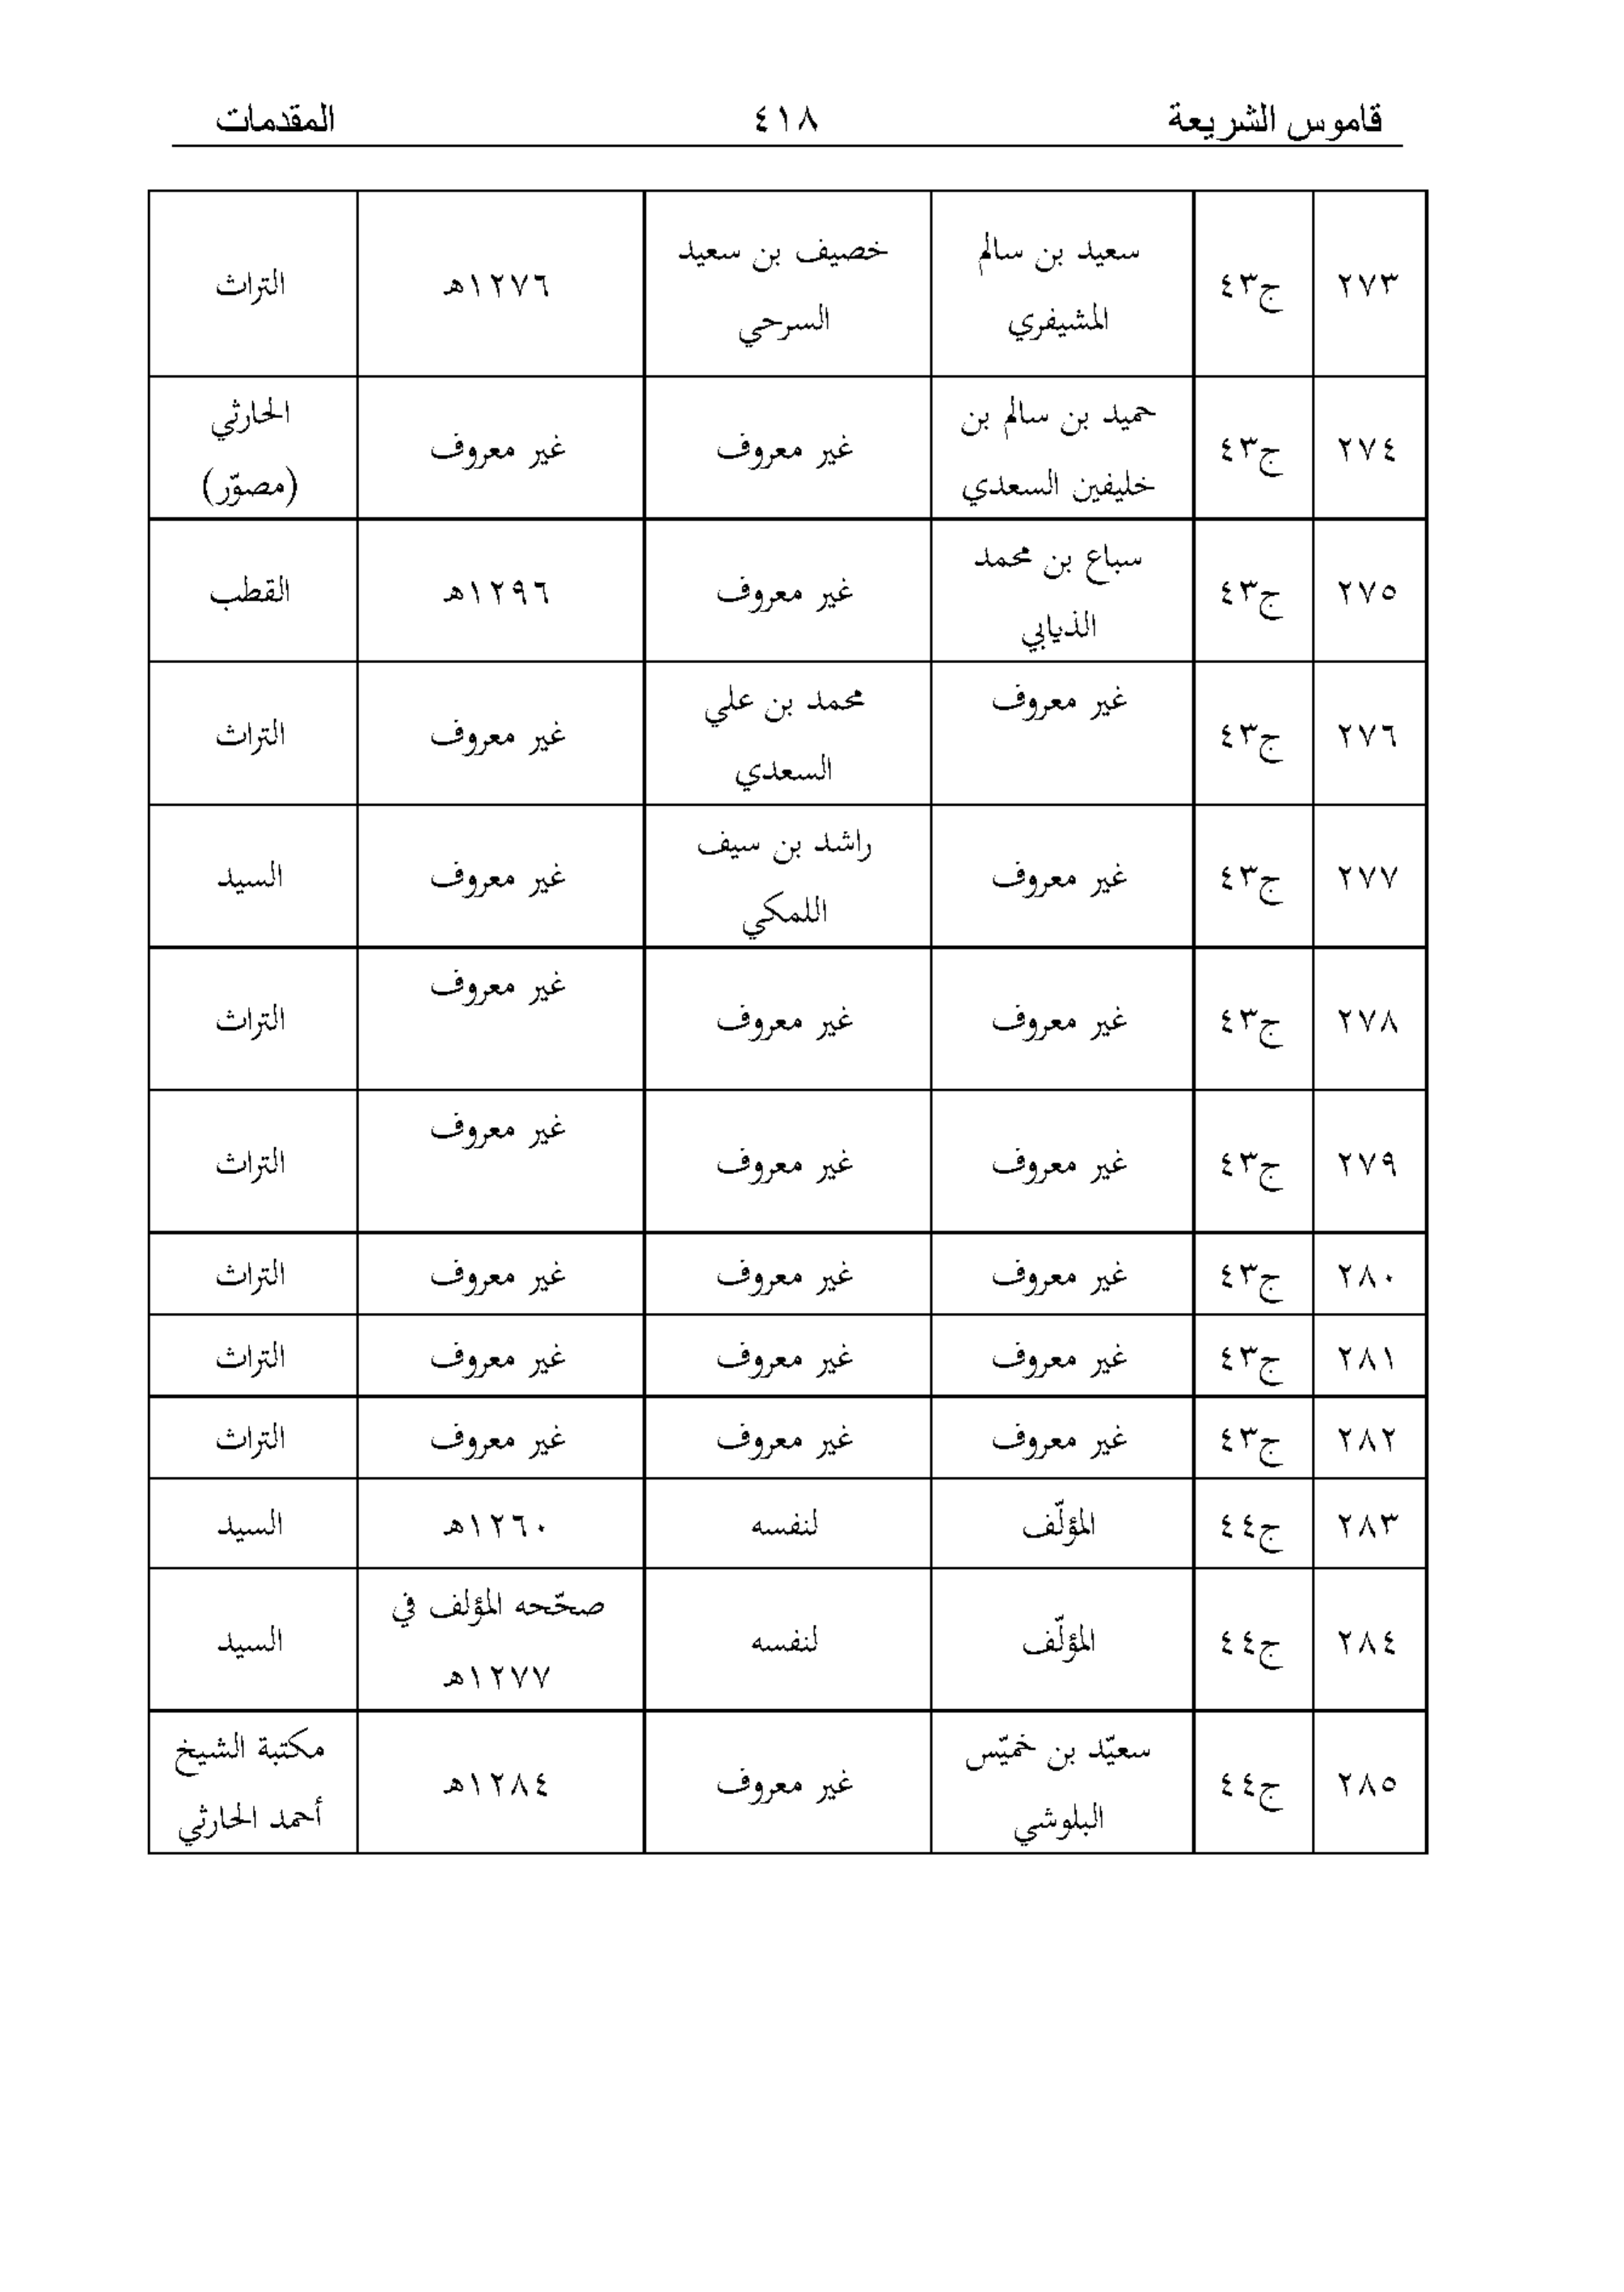 قاموس الشريعة ٤١٨ المقدمات
٢٧٣ ج٤٣ سعيد بن سالم المشيفري خصيف بن سعيد السرحي ١٢٧٦هـ التراث
٢٧٤ ج٤٣ حميد بن سالم بن خليفين السعدي غير معروف غير معروف الحارثي (مصوّر)
٢٧٥ ج٤٣ سباع بن محمد الذيابي غير معروف ١٢٩٦هـ القطب
٢٧٦ ج٤٣ غير معروف محمد بن علي السعدي غير معروف التراث
٢٧٧ ج٤٣ غير معروف راشد بن سيف اللمكي غير معروف السيد
٢٧٨ ج٤٣ غير معروف غير معروف غير معروف التراث
٢٧٩ ج٤٣ غير معروف غير معروف غير معروف التراث
٢٨٠ ج٤٣ غير معروف غير معروف غير معروف التراث
٢٨١ ج٤٣ غير معروف غير معروف غير معروف التراث
٢٨٢ ج٤٣ غير معروف غير معروف غير معروف التراث
٢٨٣ ج٤٤ المؤلّف لنفسه ١٢٦٠هـ السيد
٢٨٤ ج٤٤ المؤلّف لنفسه صحّحه المؤلف في ١٢٧٧هـ السيد
٢٨٥ ج٤٤ سعيّد بن خميّس البلوشي غير معروف ١٢٨٤هـ مكتبة الشيخ أحمد الحارثي